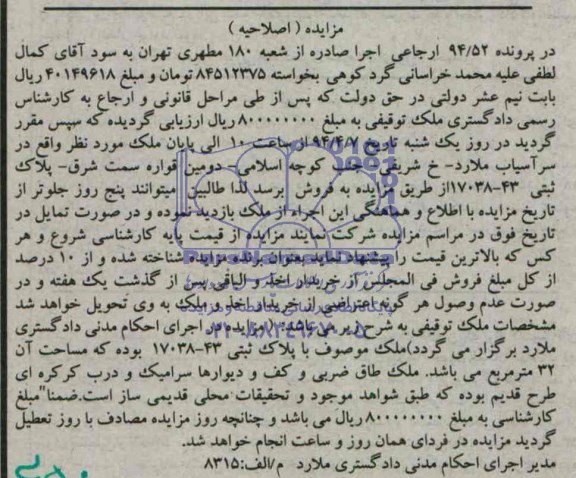 مزایده ( اصلاحیه )
در پرونده ۹۴/۵۲ ارجاعی اجرا صادره از شعبه ۱۸۰ مطهری تهران به سود آقای کمال
لطفی علیه محمد خراسانی گرد کوهی بخواسته ۸۴۵۱۲۳۷۵ تومان و مبلغ ۴۰۱۴۹۶۱۸ ریال
بابت نیم عشر دولتی در حق دولت که پس از طی مراحل قانونی و ارجاع به کارشناس
رسمی دادگستری ملک توقیفی به مبلغ ۸۰۰۰۰۰۰۰۰ ریال ارزیابی گردیده که سپس مقرر
گردید در روز یک شنبه تاریخ ۹۴/۴/۷ از ساعت ۱۰ الی پایان ملک مورد نظر واقع در
سرآسیاب ملارد- خ شریفی- جنب کوچه اسلامی- دومین قواره سمت شرق- پلاک
ثبتی ۴۳-۱۷۰۳۸از طریق مزایده به فروش برسد لذا طالبین میتوانند پنج روز جلوتر از
تاریخ مزایده با اطلاع و هماهنگی این اجراء از ملک بازدید نموده و در صورت تمایل در
تاریخ فوق در مراسم مزایده شرکت نمایند مزایده از قیمت پایه کارشناسی شروع و هر
کس که بالاترین قیمت را پیشنهاد نماید بعنوان برنده مزایده شناخته شده و از ۱۰ درصد
از کل مبلغ فروش فی المجلس از خریدار اخذ و الباقی پس از گذشت یک هفته و در
صورت عدم وصول هر گونه اعتراضی از خریدار اخذ و ملک به وی تحویل خواهد شد
مشخصات ملک توقیفی به شرح زیر می باشد: (مزایده در اجرای احکام مدنی دادگستری
ملارد برگزار می گردد)ملک موصوف با پلاک ثبتی ۴۳-۱۷۰۳۸ بوده که مساحت آن
۳۲ مترمربع می باشد. ملک طاق ضربی و کف و دیوارها سرامیک و درب کرکره ای
طرح قدیم بوده که طبق شواهد موجود و تحقیقات محلی قدیمی ساز است.ضمنا"مبلغ
کارشناسی به مبلغ ۸۰۰۰۰۰۰۰۰ ریال می باشد و چنانچه روز مزایده مصادف با روز تعطیل
گردید مزایده در فردای همان روز و ساعت انجام خواهد شد.
مدیر اجرای احکام مدنی دادگستری ملارد م/الف:۸۳۱۵